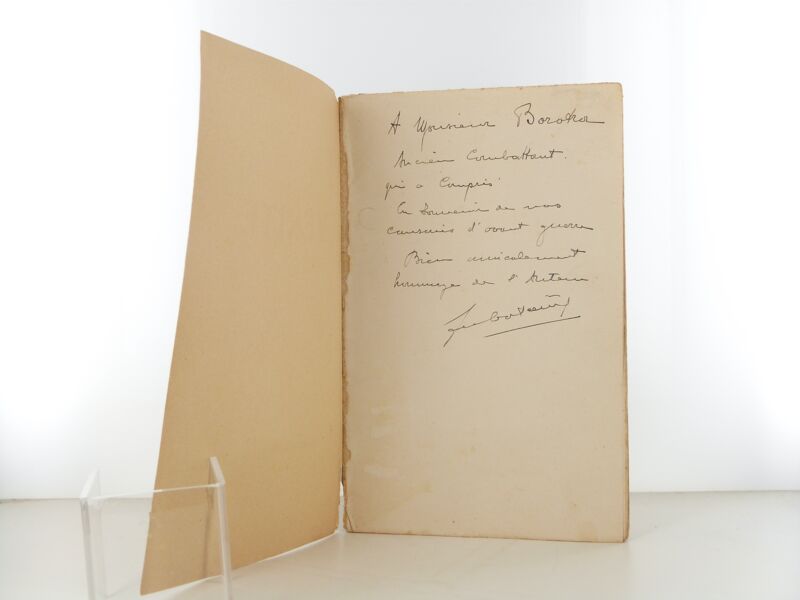 A Monsieur Borokor
Ancien Combattant.
qui a Compris
En Souvenir de nos
causeries d'avant guerre
Bien amicalement
hommage de l'Auteur